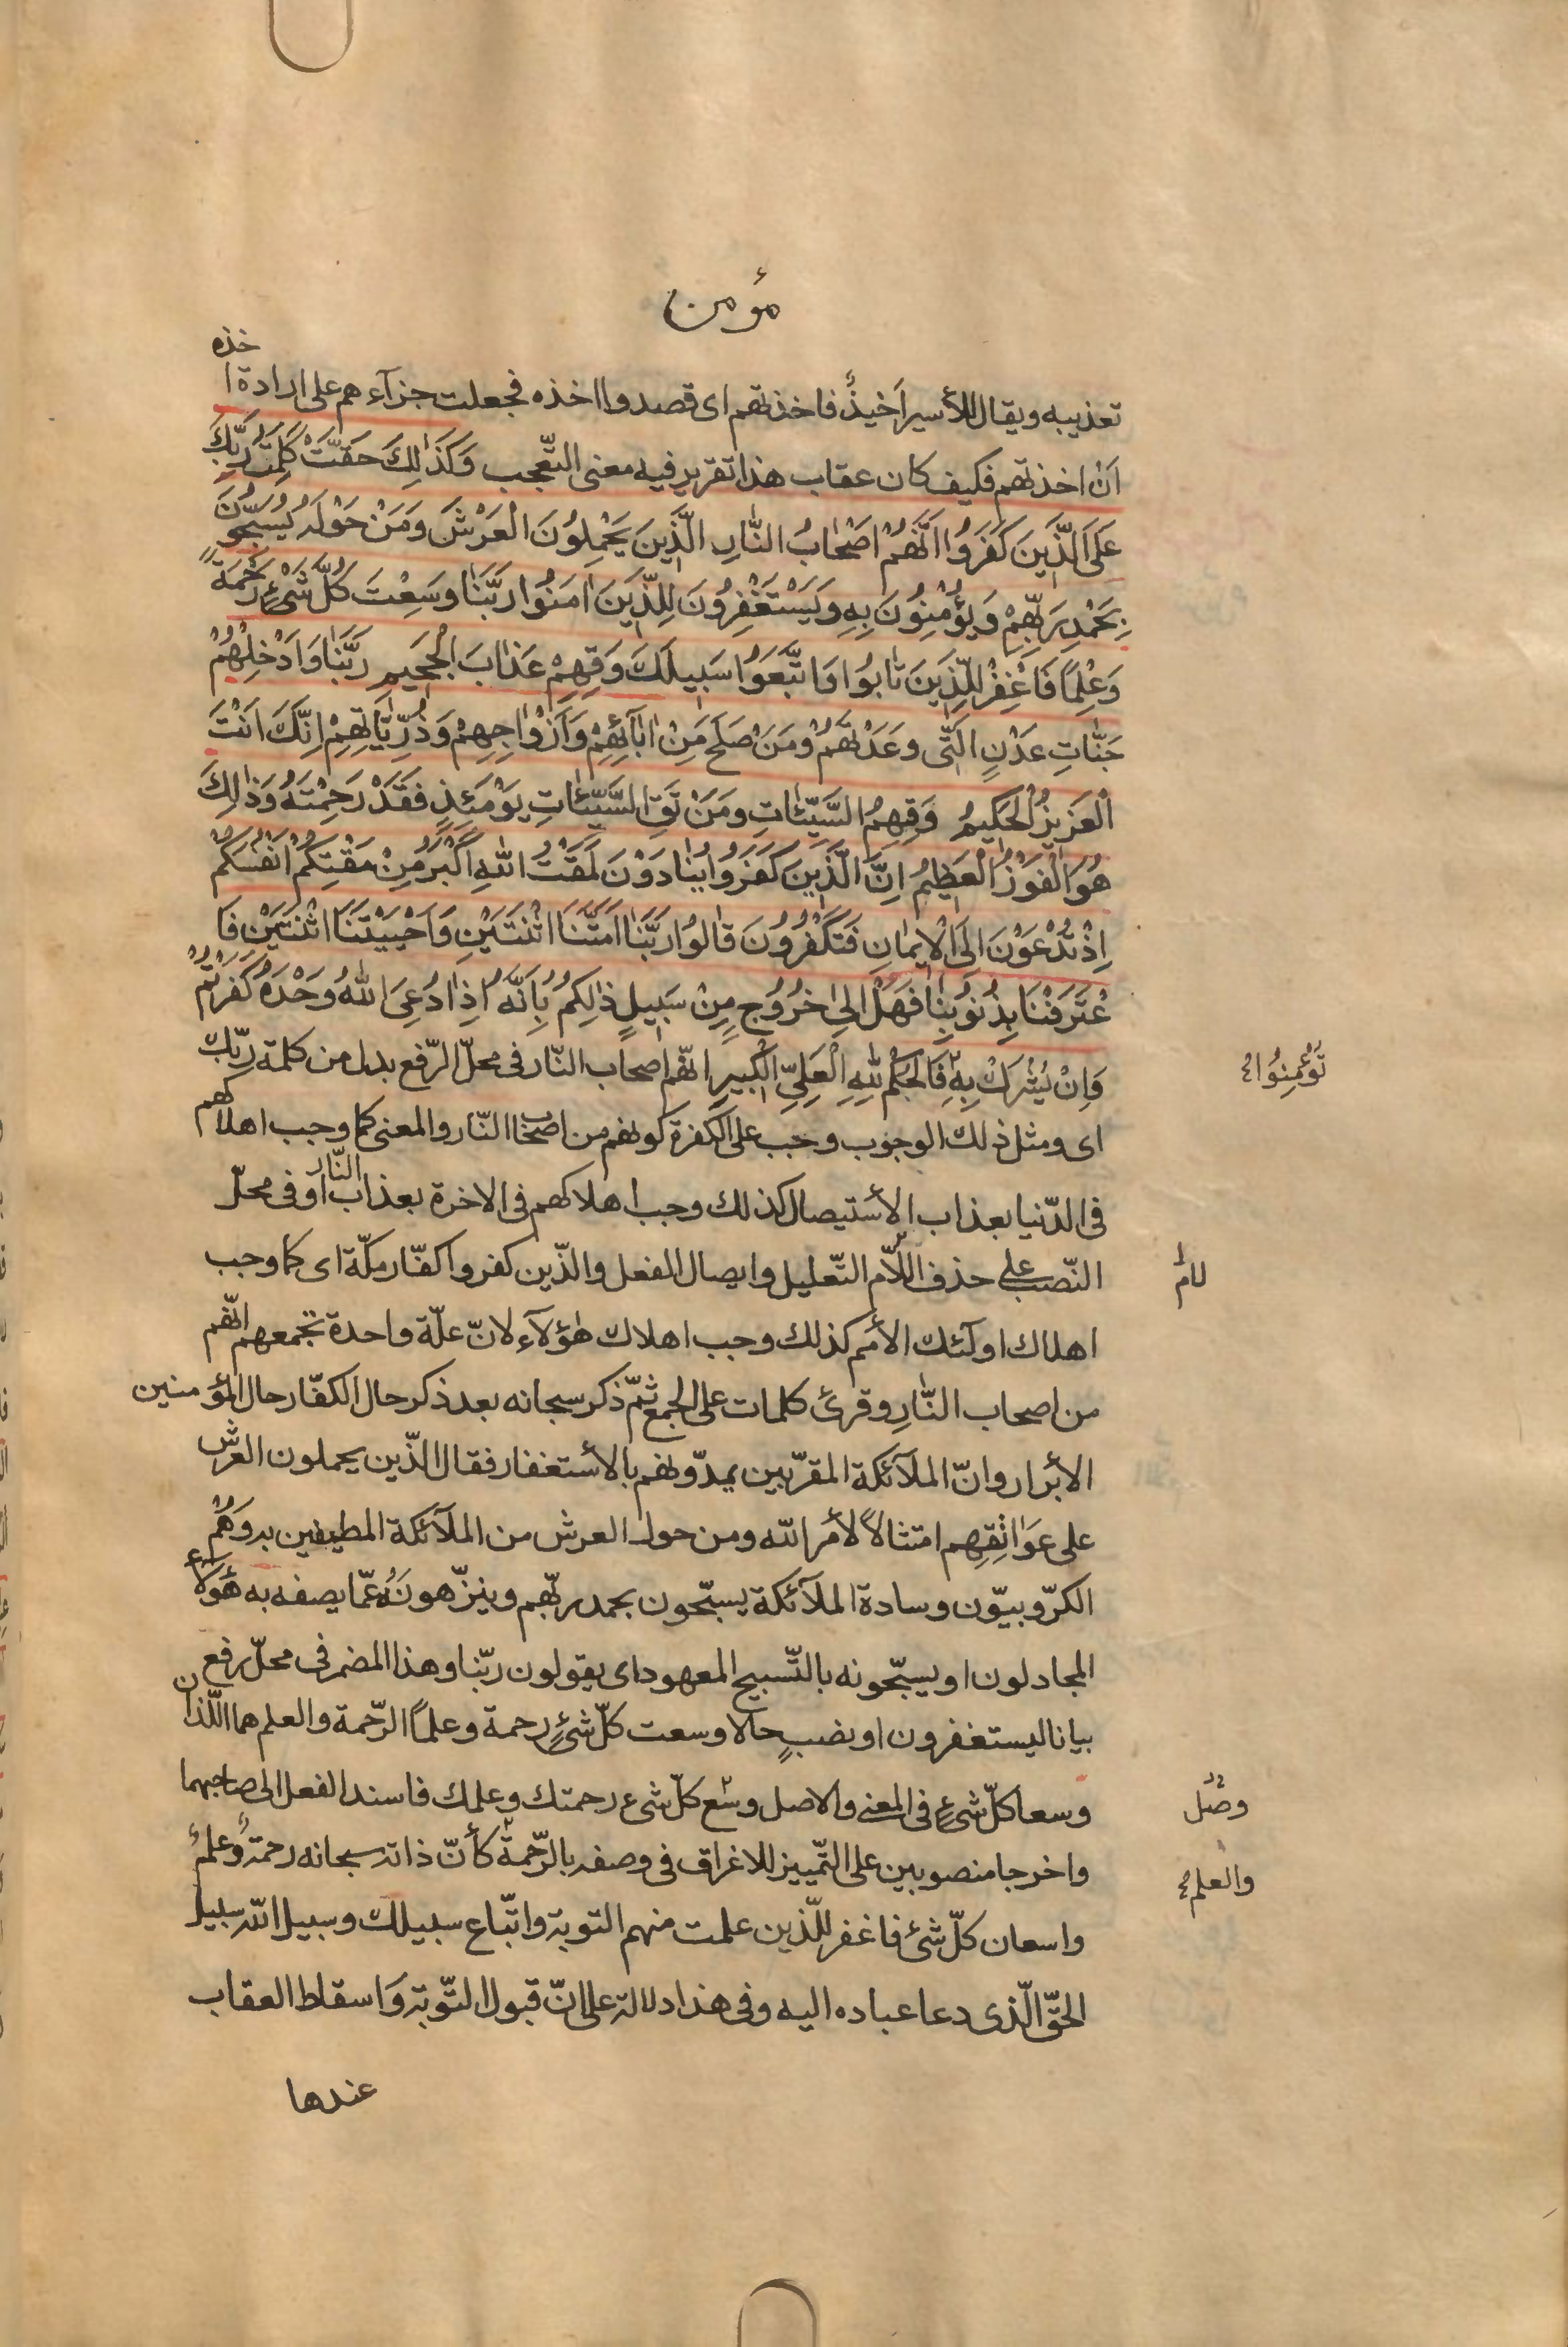 مؤمن
خذه
تعذيبه ويقال للأسير اخيذ فاخذتهم اى قصدوا اخذه فجعلت جزآءهم على ارادة ا
ان اخذتهم فكيف كان عقاب هذا تقرير فيه معنى التعجب وَكَذٰلِكَ حَقَّتْ كَلِمَتُ رَبِّكَ
عَلَى الَّذِينَ كَفَرُوا اَنَّهُمْ اَصْحٰابُ النّٰارِ الَّذِينَ يَحْمِلُونَ الْعَرْشَ وَمَنْ حَوْلَهُ يُسَبِّحُونَ
بِحَمْدِ رَبِّهِمْ وَيُؤْمِنُونَ بِهِ وَيَسْتَغْفِرُونَ لِلَّذِينَ اٰمَنُوا رَبَّنٰا وَسِعْتَ كُلَّ شَىْءٍ رَحْمَةً
وَعِلْمًا فَاغْفِرْ لِلَّذِينَ تٰابُوا وَاتَّبَعَوُا سَبِيلَكَ وَقِهِمْ عَذٰابَ الْجَحِيمِ رَبَّنٰا وَاَدْخِلْهُمْ
جَنّٰاتِ عَدْنٍ الَّتٖى وَعَدْتَهُمْ وَمَنْ صَلَحَ مِنْ اٰبٰآئِهِمْ وَاَزْوٰاجِهِمْ وَذُرِّيّٰاتِهِمْ اِنَّكَ اَنْتَ
الْعَزِيزُ الْحَكِيمُ وَقِهِمُ السَّيِّئٰاتِ وَمَنْ تَقِ السَّيِّئٰاتِ يَوْمَئِذٍ فَقَدْ رَحِمْتَهُ وَذٰلِكَ
هُوَ الْفَوْزُ الْعَظِيمُ اِنَّ الَّذِينَ كَفَرُوا يُنٰادَوْنَ لَمَقْتُ اللّٰهِ اَكْبَرُ مِنْ مَقْتِكُمْ اَنْفُسَكُمْ
اِذْ تُدْعَوْنَ اِلَى الْاِيمٰانِ فَتَكْفُرُونَ قٰالُوا رَبَّنٰا اَمَتَّنَا اثْنَتَيْنِ وَاَحْيَيْتَنَا اثْنَتَيْنِ فَا
عْتَرَفْنَا بِذُنُوبِنٰا فَهَلْ اِلىٰ خُرُوجٍ مِنْ سَبِيلٍ ذٰلِكُمْ بِاَنَّهُ اِذٰا دُعِىَ اللّٰهُ وَحْدَهُ كَفَرْتُمْ
وَاِنْ يُشْرَكْ بِهِ فَالْحُكْمُ لِلّٰهِ الْعَلِىِّ الْكَبِيرِ انّهم اصحاب النّار فى محلّ الرّفع بدل من كلمة ربّك
تُؤْمِنُوا
اى ومثل ذلك الوجوب وجب على الكفرة كونهم من اصحاب النّار والمعنى كما وجب اهلاكهم
فى الدّنيا بعذاب الأستيصال كذلك وجب اهلاكهم فى الاخرة بعذاب النّار او فى محلّ
النّصب على حذف اللّام التّعليل وايصال الفعل والذّين كفروا كفّار مكّة اى كما وجب
لام
اهلاك اولٓئك الأمم كذلك وجب اهلاك هٰؤلآء لانّ علّة واحدة تجمعهم انّهم
من اصحاب النّار وقرئ كلمات على الجمع ثمّ ذكر سبحانه بعد ذكر حال الكفّار حال المؤمنين
الأبرار وانّ الملآئكة المقرّبين يمدّونهم بالأستغفار فقال الذّين يحملون العرش
على عَوَاتِقِهِم امتثالاً لأمر الله ومن حول العرش من الملآئكة المطيفين به وَهُم
الكرّوبيوّن وسادة الملآئكة يسبّحون بحمد ربّهم وينزّهونَهُ عمّا يصفه به هٰؤلآء
المجادلون او يسبّحونه بالتّسبيح المعهود اى يقولون ربّنا وهذا المضمر فى محلّ رفع
بيانا ليستغفرون او نصبٍ حالا وسعت كلّ شئٍ رحمة وعلماً الرّحمة والعلم هما اللّذان
وسعا كلّ شئٍ فى المعنى والاصل وسع كلّ شىء رحمتك وعلمك فاسند الفعل الى صاحبهما
وصل
واخرجا منصوبين على التّمييز للاغراق فى وصفه بالرّحمة كأنّ ذاته سبحانه رحمة وعلم
والعلم
واسعان كلّ شئ فاغفر للّذين علمت منهم التوبة واتّباع سبيلك وسبيل الله سبيل
الحقّ الّذى دعا عباده اليه وفى هذا دلالة على انّ قبول التّوبة وَاسقاط العقاب
عندها